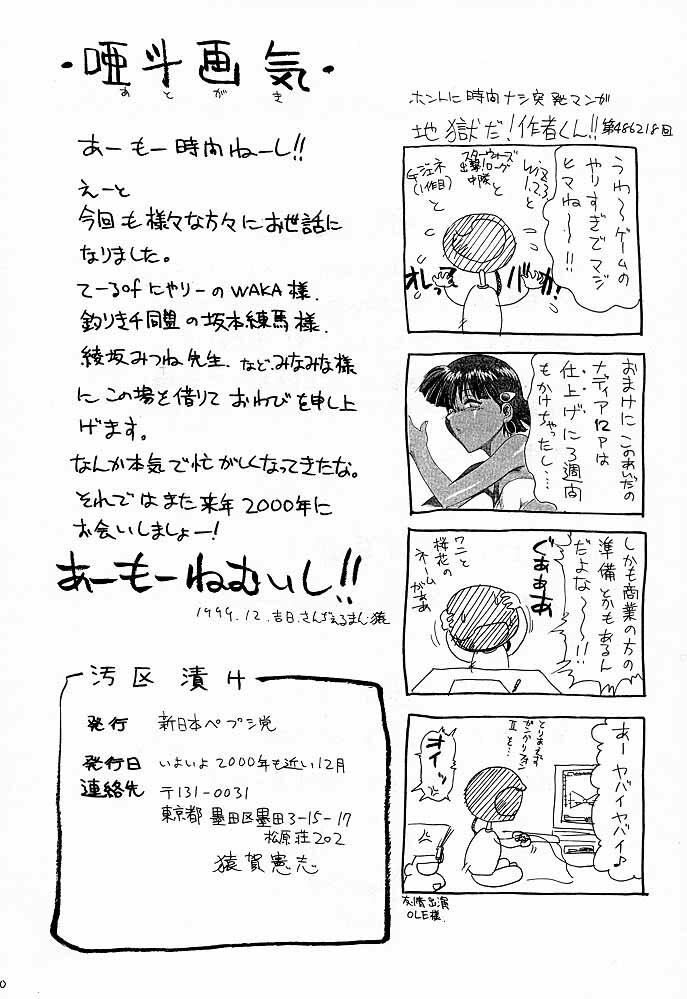 ・唖斗画気・
あとがき
あーもー時間ねーし!!
えーと
今回も様々な方々にお世話に
なりました。
てーるofにゃりーのWAKA様.
釣りキチ同盟の坂本練馬様.
綾坂みつね先生.などみなみな様
にこの場を借りておわびを申し上
げます。
なんか本気で忙がしくなってきたな。
それではまた来年2000年に
お会いしましょー!
あーもーねむいし!!
1999.12.吉日.さんぢぇるまん猿
汚区 漬け
発行 新日本ペプシ党
発行日 いよいよ2000年も近い12月
連絡先 〒131-0031
東京都 墨田区墨田3-15-17
松原荘202
猿賀憲志
ホントに時間ナシ突発マンガ
地獄だ!作者くん!!第486218回
うわ〜ゲームの
やりすぎでマジ
ヒマね〜〜!!
Wiz
1.2.3
と
スターウォーズ
出撃!ローグ
中隊
と
(1作目)
と
バカ
オレって
おまけにこのあいだの
ナディア12Pは
仕上げに3週間
もかけちゃったし…
しかも商業の方の
準備とかもあるん
だよな〜〜!!
ぐあああ
ワニと
桜花の
ネームがああ
あーヤバイヤバイ♪
とりあえず
II を…
オイッ
友情出演
OLE様.